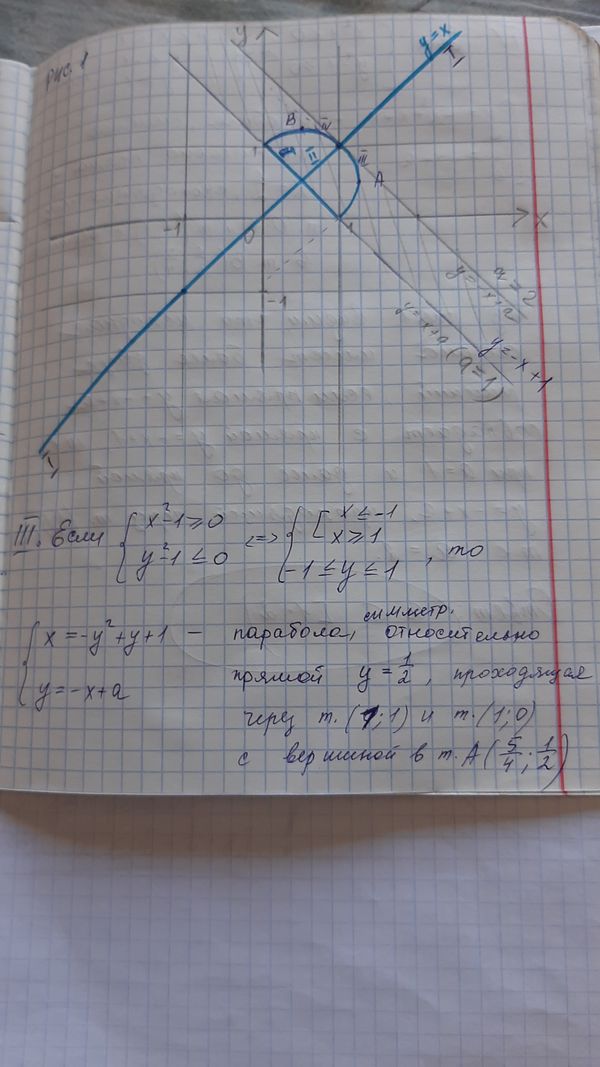 рис. 1
y
y=x
I₁
B
IV
II
I=I
III
A
-1
0
1
x
-1
a=2
y=-x+2
y=-x+a (a=1)
y=-x+1
I₁
III. Если { x²-1≥0 <=> { [ x≤-1
x≥1
y²-1≤0 -1≤y≤1 , то
{ x=-y²+y+1 — парабола, симметр. относительно
y=-x+a прямой y=1/2, проходящая
через т.(1;1) и т.(1;0)
с вершиной в т. A(5/4; 1/2)